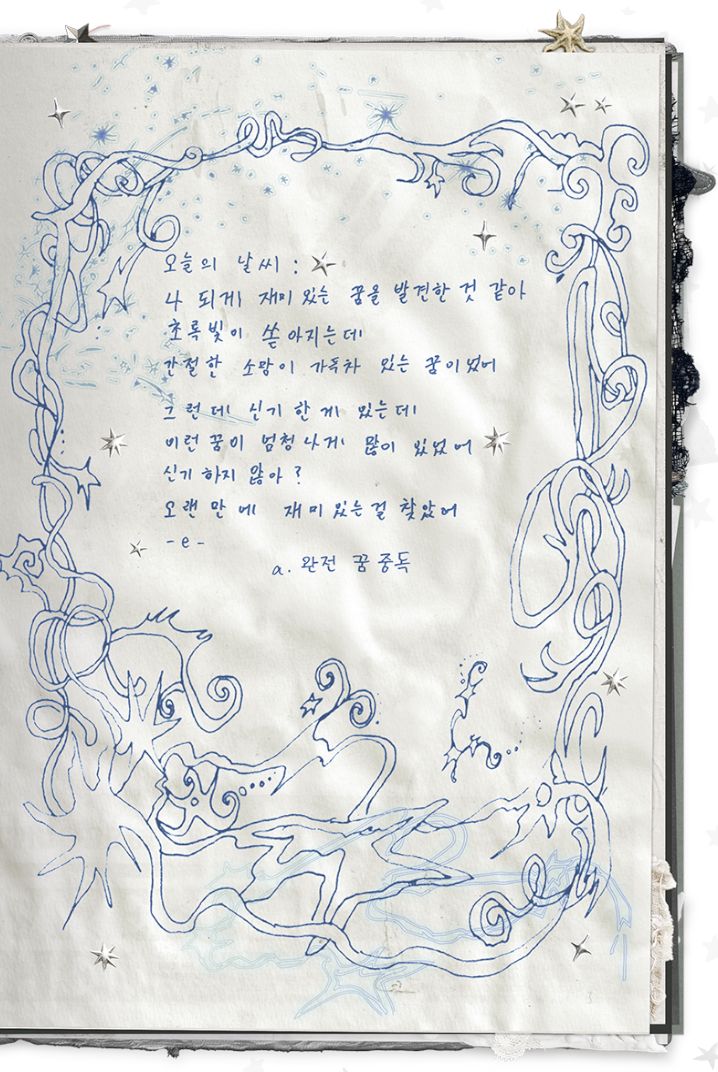 오늘의 날씨 :
나 되게 재미있는 꿈을 발견한 것 같아
초록빛이 쏟아지는데
간절한 소망이 가득차 있는 꿈이었어
그런데 신기한게 있는데
이런 꿈이 엄청나게 많이 있었어
신기하지 않아?
오랜만에 재미있는걸 찾았어
-e-
a. 완전 꿈 중독